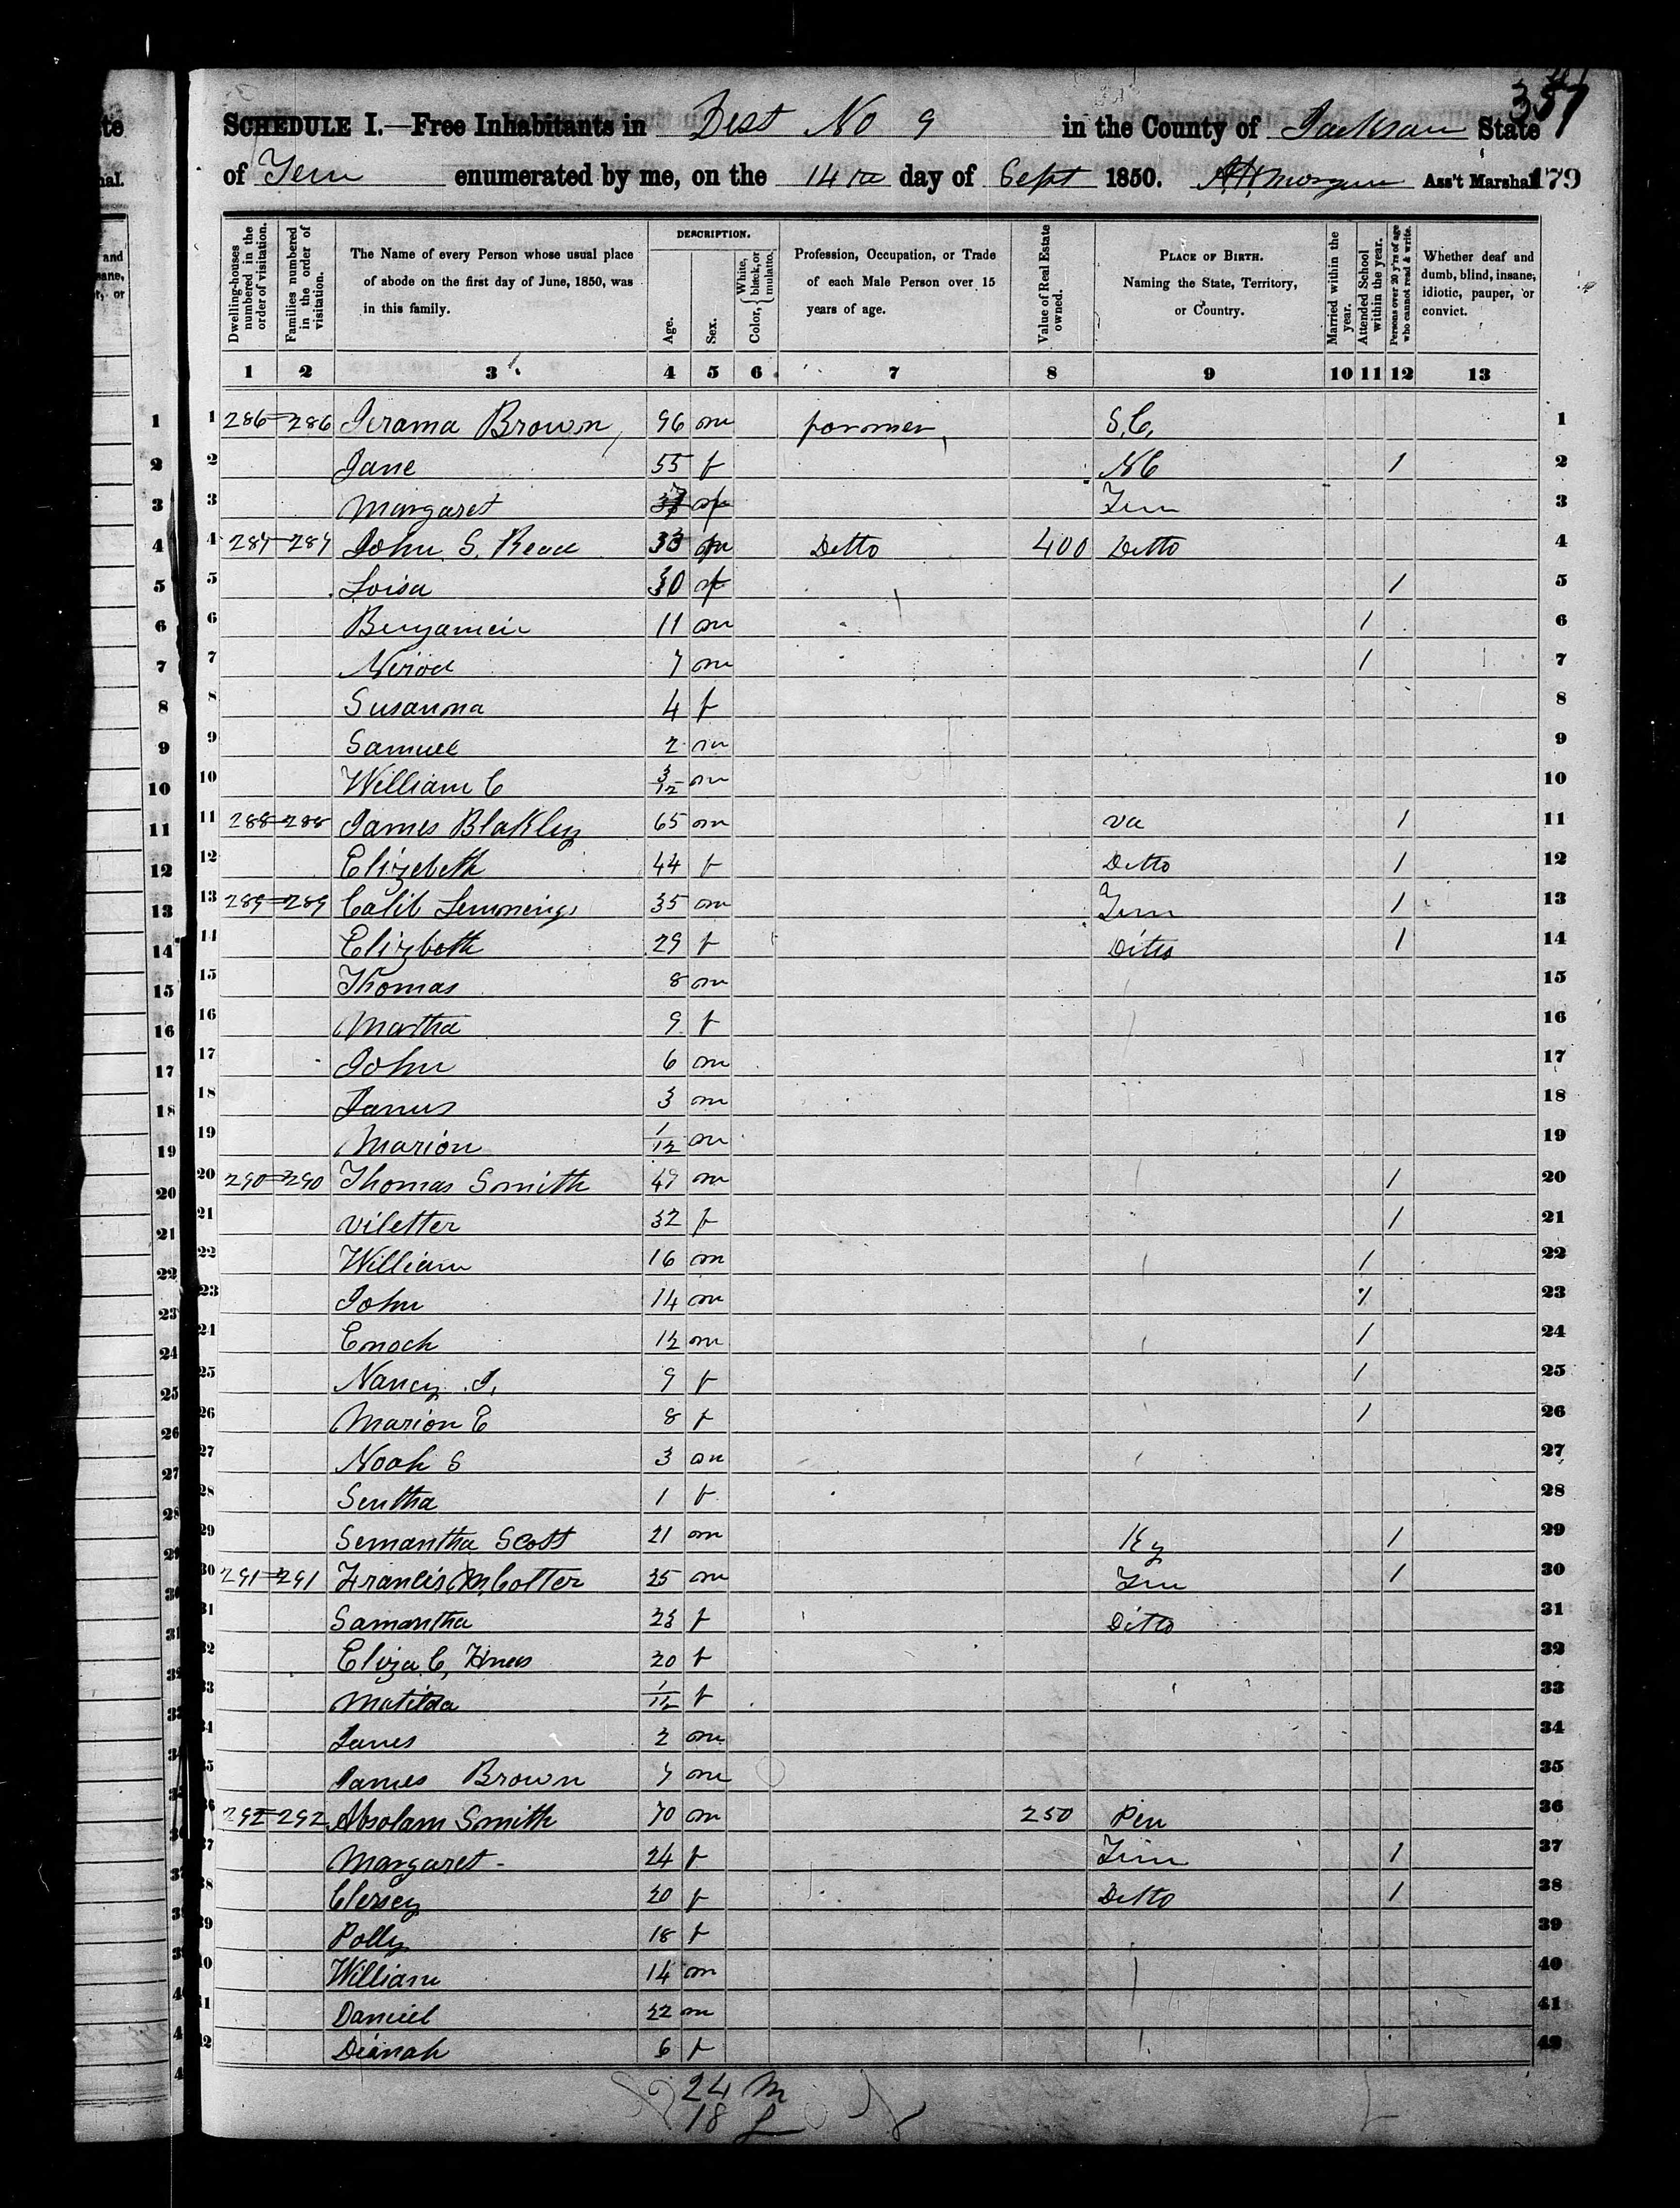 357
SCHEDULE I.—Free Inhabitants in Dist No 9 in the County of Jackson State
of Tenn enumerated by me, on the 14th day of Sept 1850. A H Morgan Ass't Marshal 179
Dwelling-houses numbered in the order of visitation. Families numbered in the order of visitation. The Name of every Person whose usual place of abode on the first day of June, 1850, was in this family. DESCRIPTION. Age. Sex. Color, { White, black, or mulatto. Profession, Occupation, or Trade of each Male Person over 15 years of age. Value of Real Estate owned. PLACE OF BIRTH. Naming the State, Territory, or Country. Married within the year. Attended School within the year. Persons over 20 y'rs of age who cannot read & write. Whether deaf and dumb, blind, insane, idiotic, pauper, or convict.
1 2 3 4 5 6 7 8 9 10 11 12 13
1 286=286 Jerama Brown, 96 m farmer, S.C. 1
2 Jane 55 f NC 1 2
3 Margaret f Tenn 3
4 287-287 John S. Read 33 m Ditto 400 Ditto 4
5 Loisa 30 f 1 5
6 Benjamin 11 m 1 6
7 7 m 1 7
8 Susanna 4 f 8
9 Samuel 2 m 9
10 William C 3/12 m 10
11 288=288 James Blakley 65 m va 1 11
12 Elizebeth 44 f Ditto 1 12
13 289=289 Calib Lemmings 35 m Tenn 1 13
14 Elizbeth 29 f Ditto 1 14
15 Thomas 8 m 15
16 Martha 9 f 16
17 John 6 m 17
18 James 3 m 18
19 Marion 1/12 m 19
20 290=290 Thomas Smith 49 m 1 20
21 viletter 32 f 1 21
22 William 16 m 1 22
23 John 14 m 1 23
24 Enoch 12 m 1 24
25 Nancy J. 9 f 1 25
26 Marion E 8 f 1 26
27 Noah S 3 m 27
28 Sentha 1 f 28
29 Semantha Scott 21 m Ky 1 29
30 291=291 Francis M Cotter 25 m Tenn 1 30
31 Samantha 23 f Ditto 31
32 Eliza C, 20 f 32
33 Matilda 1/12 f 33
34 James 2 m 34
35 James Brown 7 m 35
36 292=292 Absolam Smith 70 m 250 Pen 36
37 Margaret 24 f Tenn 1 37
38 Clersey 20 f Ditto 1 38
39 Polly 18 f 39
40 William 14 m 40
41 Daniel 22 m 41
42 Dianah 6 f 42
24 M
18 f